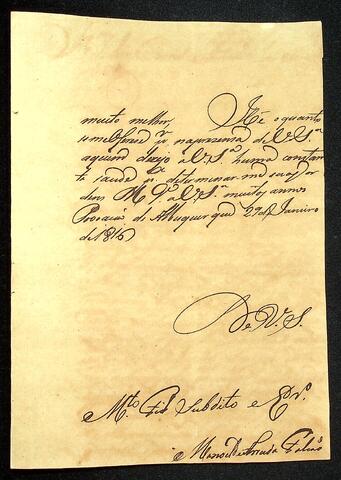 muito melhor, Hé o quanto
se me oferece pr. na prezensa de V. Sa.
a quem dezejo a V. Sa. huma constan
te saude pa. determinar me suas or
dens D. Ge. a V. Sa. muitos annos
Povoação de Albuquerque 29 de Janeiro
de 1815
De V. S.
Mto. Fiel Subdito e Cr.o